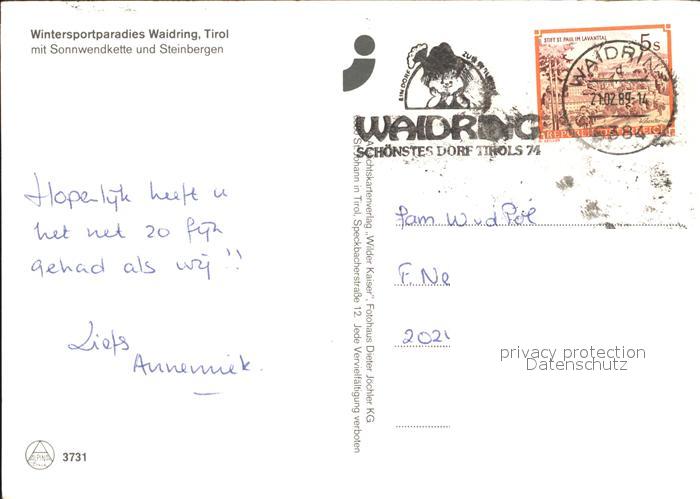 Wintersportparadies Waidring, Tirol
mit Sonnwendkette und Steinbergen
Hopenlijk heeft u
het net zo fijn
gehad als wij!!
Liefs
Annemiek.
3731
EIN DORF
WAIDRING
SCHÖNSTES DORF TIROLS 74
STIFT ST. PAUL IM LAVANTTAL
5s
REPUBLIK ÖSTERREICH
WAIDRING
21.02.89-14
6384
Ansichtskartenverlag „Wilder Kaiser“, Fotohaus Dieter Jöchler KG
St. Johann in Tirol, Speckbacherstraße 12. Jede Vervielfältigung verboten
Fam W v d Pol
F. Ne
202
privacy protection
Datenschutz